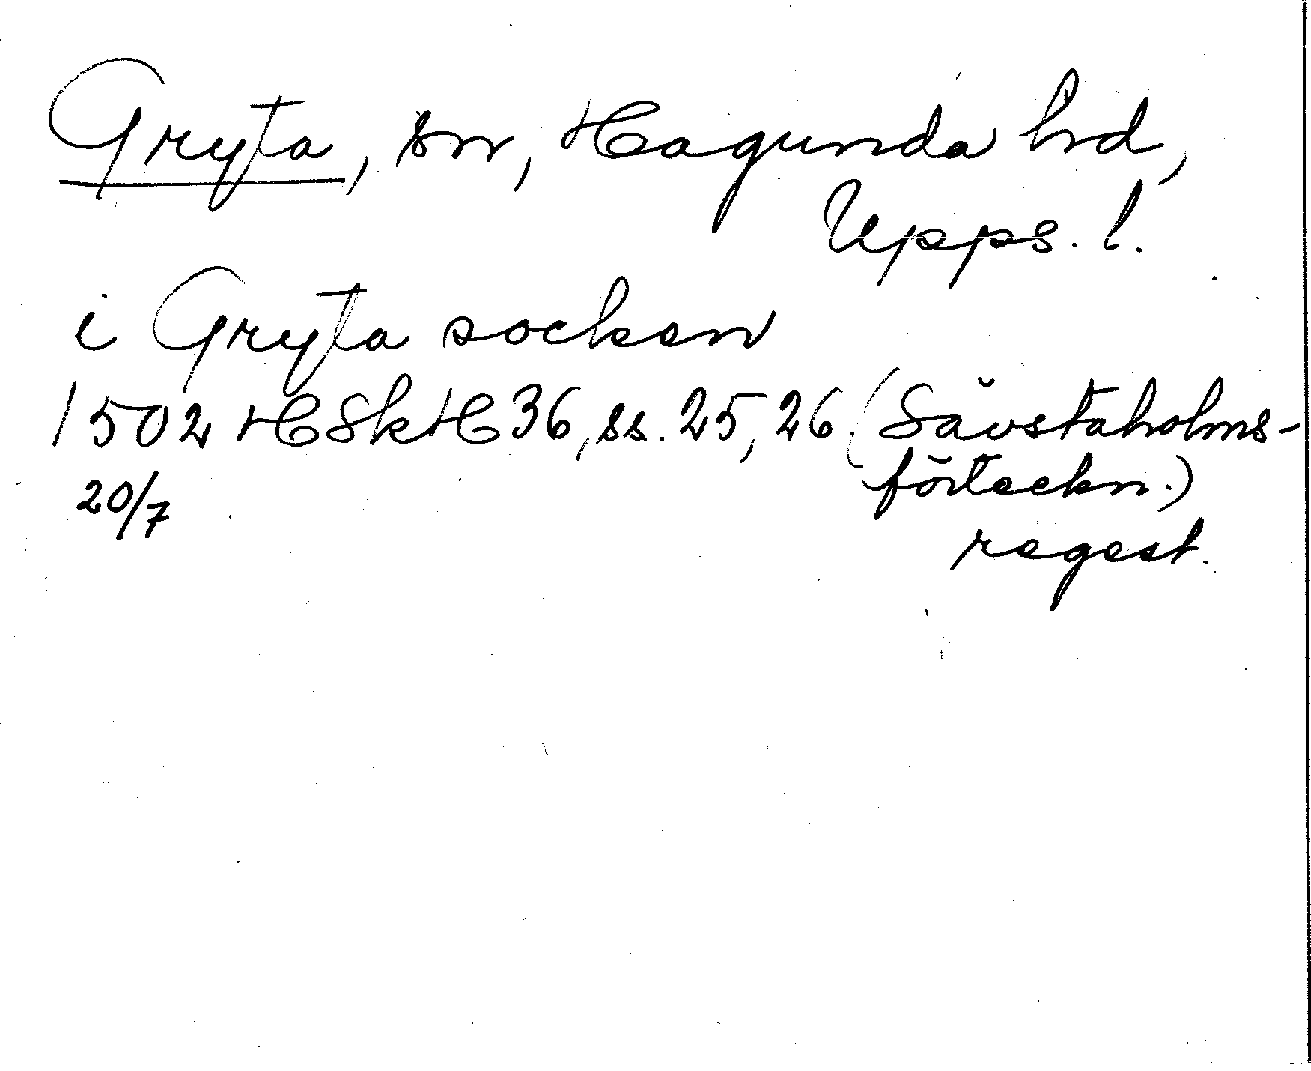 Gryta, sn, Hagunda hd,
Upps. l.
i Gryta socken
1502 HSkH 36, ss. 25, 26. (Sävstaholms-
förteckn.)
20/7
regest.